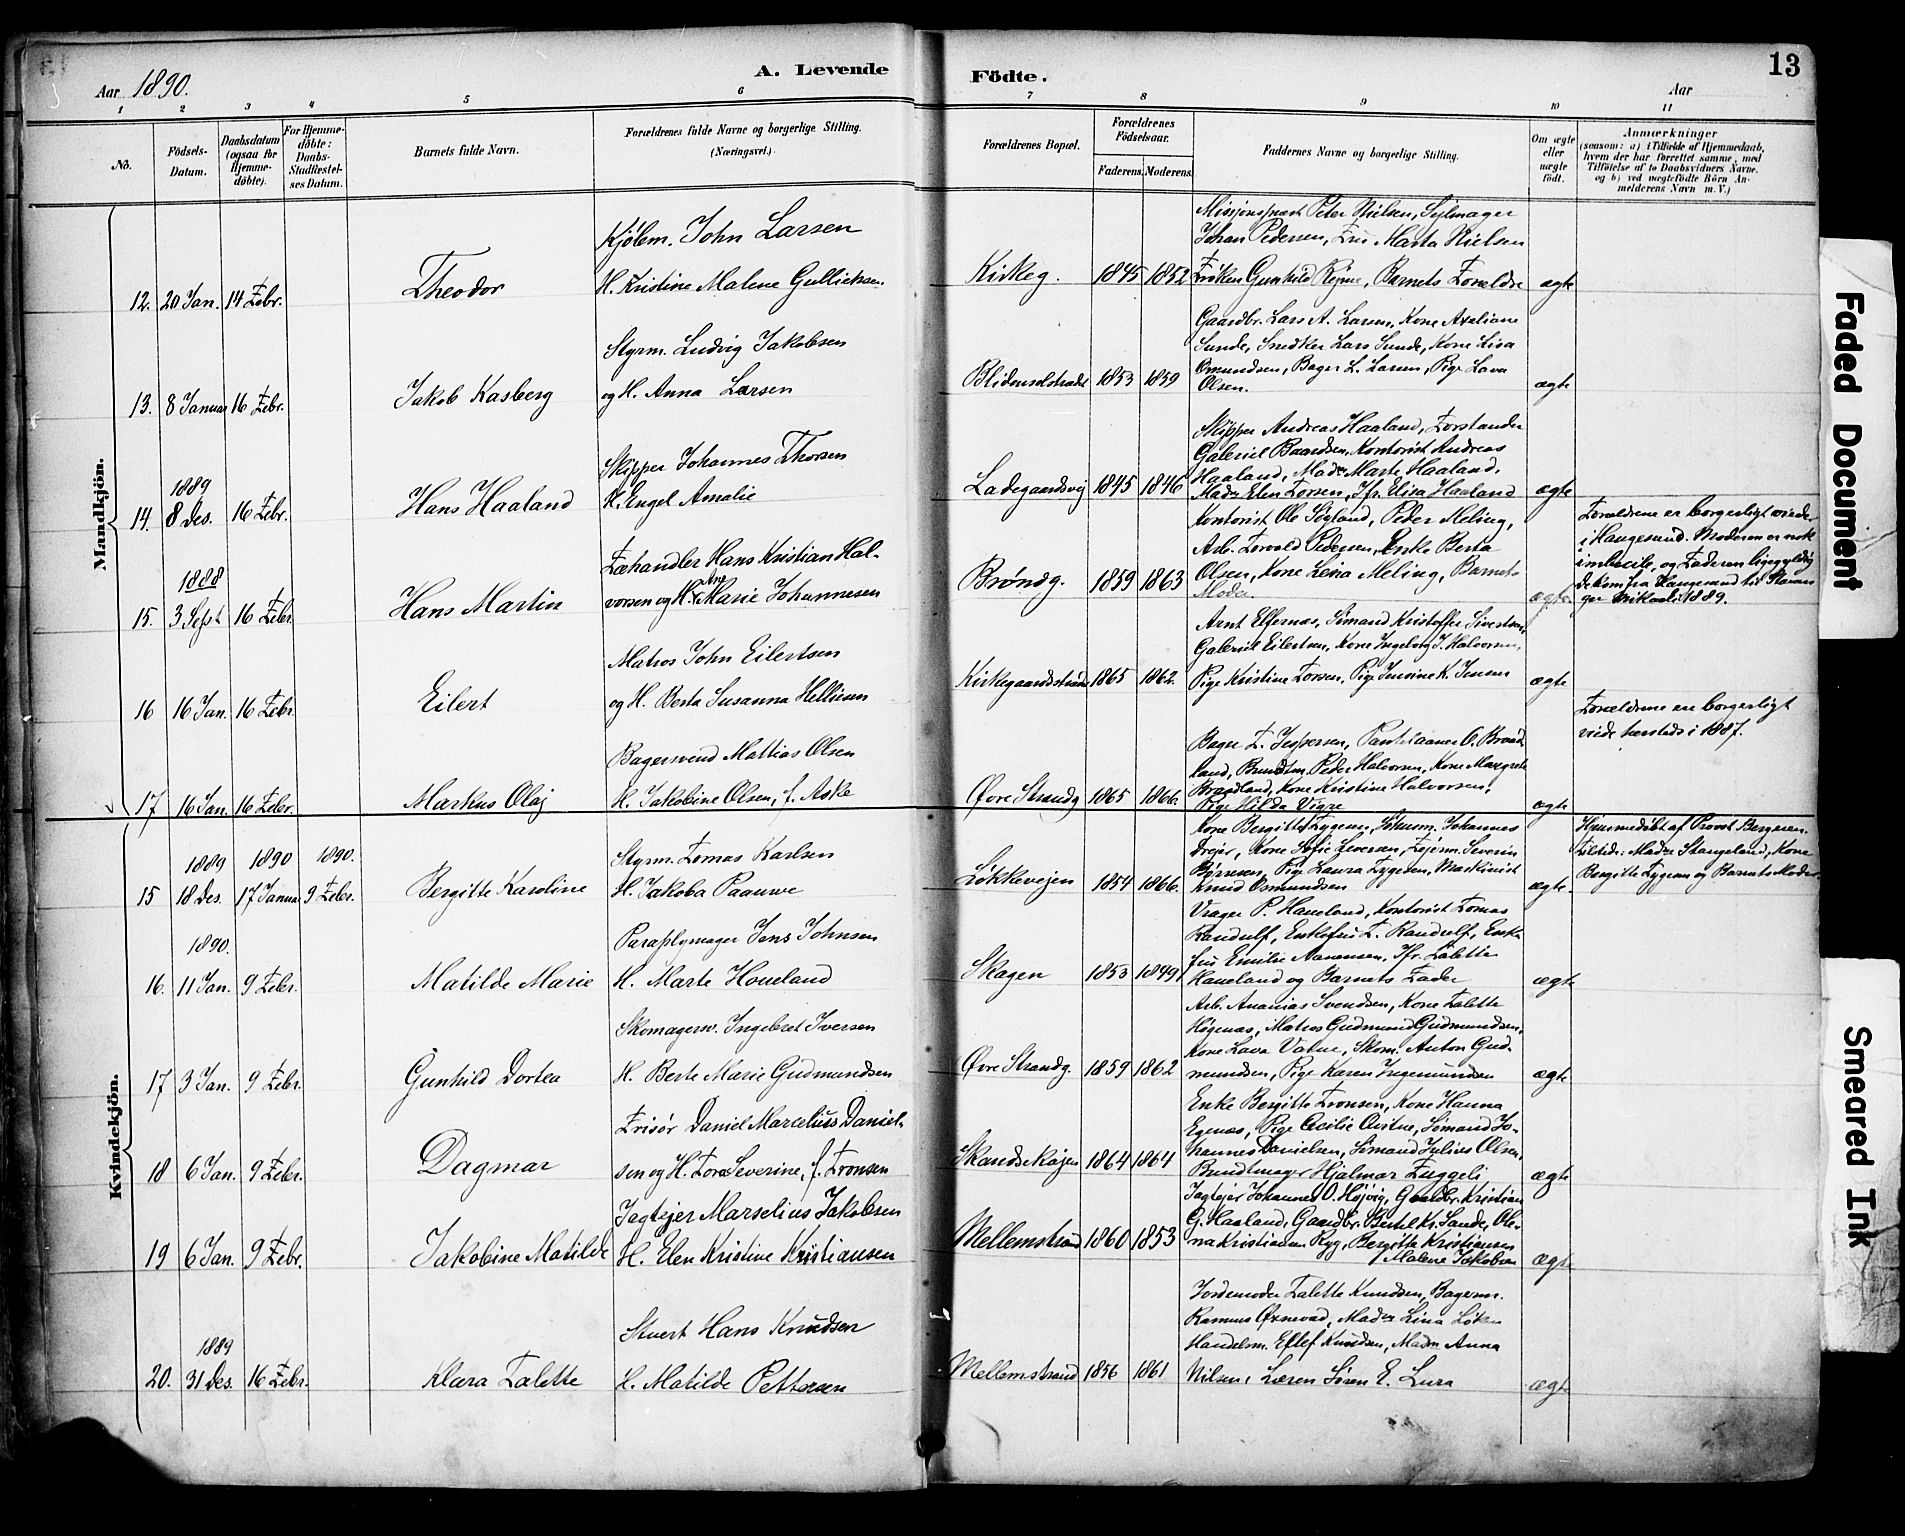 Aar 1890.
A. Levende Födte.
13
Aar
1 2 3 4 5 6 7 8 9 10 11
No.
Födsels-Datum.
Daabsdatum (ogsaa for Hjemme-döbte).
For Hjemme-döbte: Daabs-Stadfæstel-ses Datum.
Barnets fulde Navn.
Forældrenes fulde Navne og borgerlige Stilling. (Næringsvei.)
Forældrenes Bopæl.
Forældrenes Födselsaar.
Faderens. Moderens.
Faddernes Navne og borgerlige Stilling.
Om ægte eller uægte födt.
Anmærkninger
(saasom: a) i Tilfælde af Hjemmedaab,
hvem der har forrettet samme, med
Tilföielse af to Daabsvidners Navne,
og b) ved uægtefödte Börn An-
melderens Navn m. V.)
Mandkjön.
12. 20 Jan. 14 Febr.
Theodor
Kjølem. John Larsen
H. Kristine Malene Gullichsen.
Kirkeg. 1845 1852
Missjonsprest Peter Nielsen, Sejlmager
Johan Pedersen, Fru Marta Nielsen
Frøken Gunhild Rejme, Barnets Forældre
ægte
13. 8 Januar 16 Febr.
Jakob Kasberg
Styrm. Ludvig Jakobsen
og H. Anna Larsen
Blidensolstræde 1853 1859
Gaardbr. Lars A. Larsen, Kone Axeliane
Sunde, Snedker Lars Sunde, Kone Lisa
Omundsen, Bager L. Larsen, Pige Lava
Olsen.
ægte
14. 1889 8 Des. 16 Febr.
Hans Haaland
Skipper Johannes Thorsen
H. Engel Amalie
Ladegaardsvej 1845 1846
Skipper Andreas Haaland, Forstander
Gabriel Baardsen, Kontorist Andreas
Haaland, Madm Marte Haaland,
Madm Elen Torsen, Jfr. Elisa Haaland
ægte
15. 1888 3 Sept 16 Febr.
Hans Martin
Fæhandler Hans Kristian Hal-
vorsen og H. Ane Marie Johannesen
Brøndg. 1859 1863
Kontorist Ole Søyland, Peder Meling,
Arb. Torvald Pedersen, Enke Berta
Olsen, Kone Lina Meling, Barnets
Moder.
ægte
Forældrene er borgerligt viede
i Haugesund. Moderen er nok
imbecile, og Faderen ligegyldig
De kom fra Haugesund til Stavan-
ger 1889.
16 16 Jan. 16 Febr.
Eilert
Matros John Eilertsen
og H. Berta Susanna Hellisen
Kirkegaardsstræde 1865 1862.
Arnt Elfernæs, Sömand Kristoffer Sivertsen,
Gabriel Eilertsen, Kone Ingeborg J. Halvorsen,
Pige Kristine Torsen, Pige Jensine K. Jensen
ægte
17 16 Jan. 16 Febr.
Markus Olaj
Bagersvend Mattias Olsen
H. Jakobine Olsen, f. Aske
Øvre Strandg 1865 1866.
Bager T. Jespersen, Pantelaaner O. Braad-
land, Bundtm. Peder Halvorsen, Kone Margrete
Braadland, Kone Kristine Halvorsen,
Pige Hilda Vigre
ægte
Forældrene ere borgerligt
viede hersteds i 1887.
Kvindekjön.
15 1889 18 Des. 1890 17 Januar 1890. 9 Febr.
Bergitte Karoline
Styrm. Tomas Karlsen
H. Jakoba Paauwe
Løkkevejen 1854 1866.
Kone Bergitte Tygesen, Johannes
Drejer, Kone Sofie Severin
Børresen, Pige Laura Tygesen, Maskinist
Knud Osmundsen
ægte.
Hjemmedöbt af Provst Bergesen.
Tilstede: Madm Stangeland, Kone
Bergitte Tygesen og Barnets Moder.
16. 1890. 11 Jan. 9 Febr.
Matilde Marie
Paraplymager Jens Johnsen
H. Marte Houeland
Skagen 1853 1849
Vrager P. Haueland, Kontorist Tomas
Randulf, Enkefru T. Randulf, Enke
fru Emilie Aanensen, Jfr. Talette
Haueland og Barnets Fader
ægte
17 3 Jan. 9 Febr.
Gunhild Dortea
Skomagersv. Ingebret Iversen
H. Berte Marie Gudmundsen
Øvre Strandg. 1859 1862
Arb. Ananias Svendsen, Kone Talette
Høgenæs, Matros Gudmund Gudmundsen,
Kone Lava Vatne, Skom. Anton Gud-
mundsen, Pige Karen Ingemundsen
ægte
18 6 Jan. 9 Febr.
Dagmar
Frisør Daniel Marcelius Daniel-
sen og H. Tora Severine, f. Fronsen
Skandsekajen 1864 1864
Enke Bergitte Fronsen, Kone Hanna
Egenæs, Pige Cecilie Qvitne, Sömand Jo-
hannes Danielsen, Sömand Julius Olsen,
Bundtmager Hjalmar Fuggeli
ægte
19 6 Jan. 9 Febr.
Jakobine Matilde
Jagtejer Marselius Jakobsen
H. Elen Kristine Kristiansen
Mellemstrand 1860 1853
Jagtejer Johannes O. Højvig, Gaardbr. Kristian
G. Haaland, Gaardbr. Bertel Kr. Sande, Ole-
na Kristiansen Ryg, Bergitte Kristiansen
Malene Jakobsen
ægte
20. 1889 31 Des. 16 Febr.
Klara Talette
Stuert Hans Knudsen
H. Matilde Pettersen
Mellemstrand 1856 1861
Jordemoder Talette Knudsen, Bagerm.
Rasmus Øxnevad, Madm Lina Løken
Handelsm. Eftef Knudsen, Madm Anna
Nilsen, Læren Sören E. Lura
ægte
Faded Document
Smeared Ink